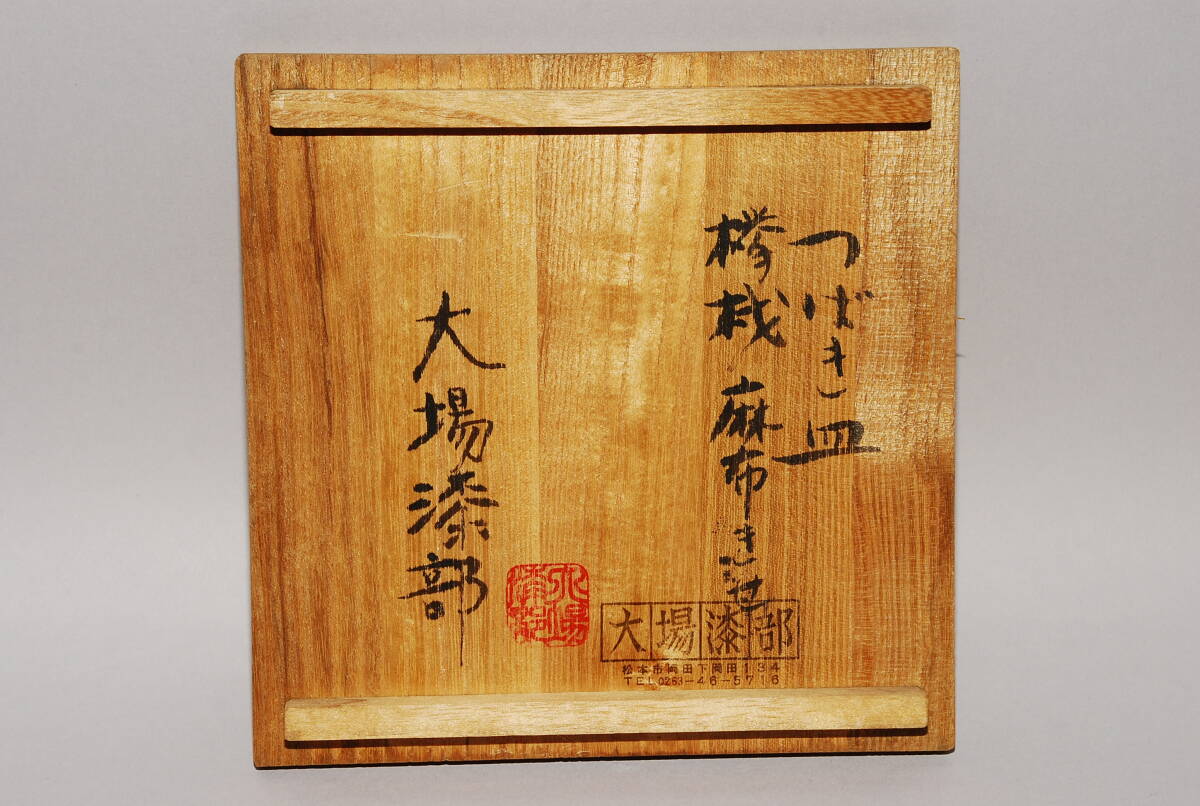 つばき皿
欅栈 麻布きせ
大場漆部
大場漆部
大場漆部
松本市岡田下岡田134
TEL0263-46-5716